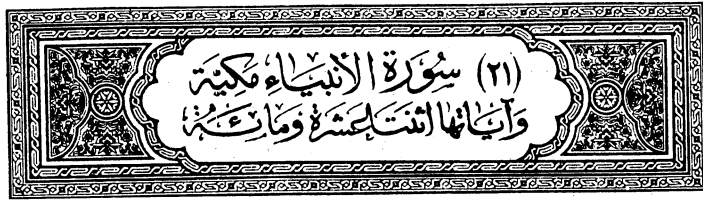 (٢١) سُورَة الأنبياء مكيّة
وَآيَاتها اثنتا عَشرة وَمائة